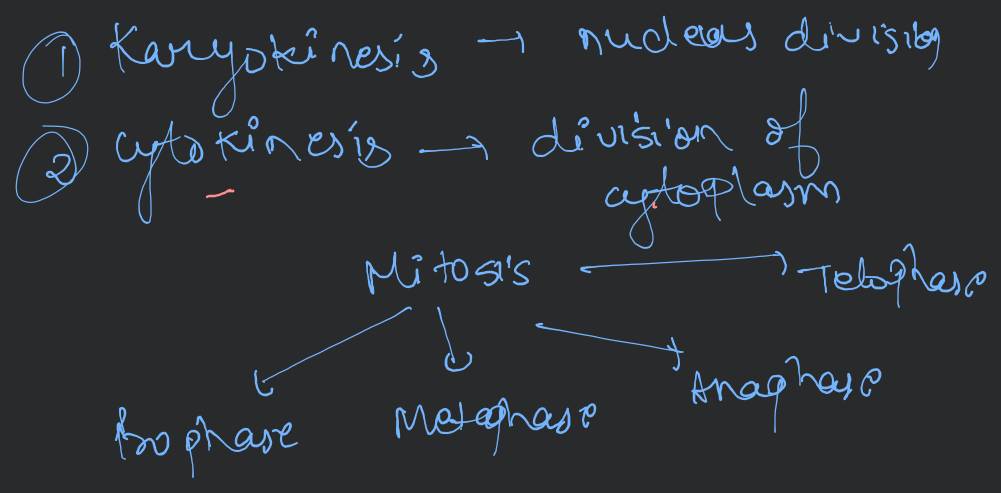 ① Karyokinesis → nucleas division
② cytokinesis → division of
cytoplasm
Mitosis → Telophase
Prophase Metaphase Anaphase